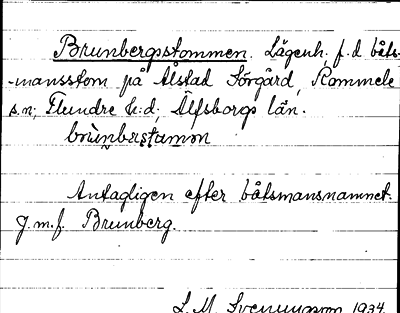 Brunbergstommen. Lägenh. f.d båts-
-mansstom på Ålstad Sörgård, Rommele
s.n; Flundre h:d; Älfsborgs län.
brùnbæstumən
Antagligen efter båtsmansnamnet.
J.m.f. Brunberg.
L. M. Svenungsson 1934